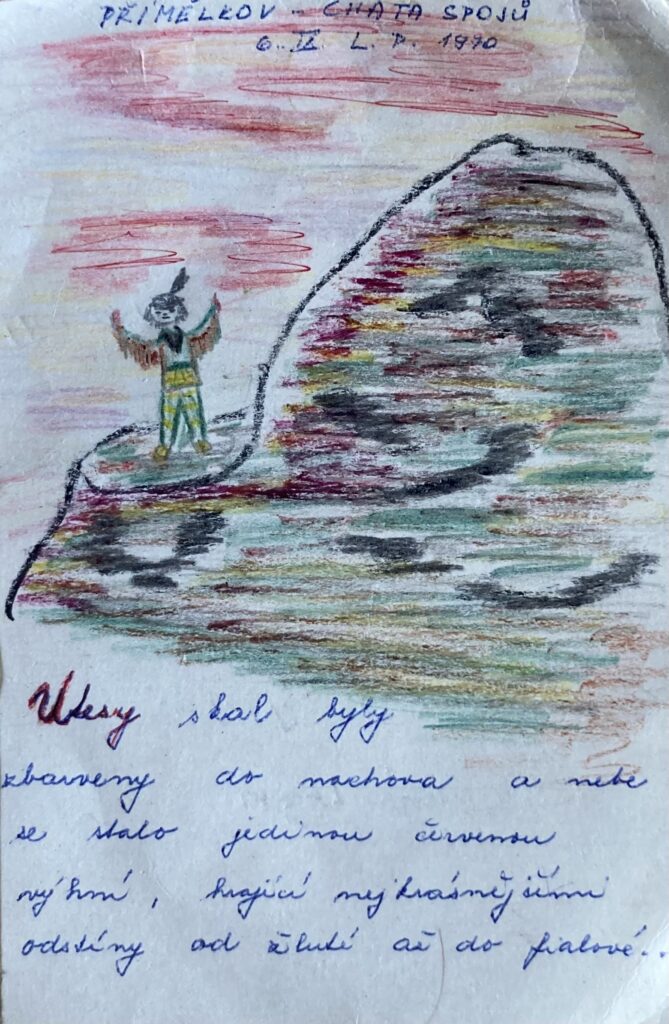 PŘÍMĚLKOV - CHATA SPOJŮ
6. IX. L. P. 1990
Útesy skal byly
zbarveny do nachova a nebe
se stalo jedinou červenou
výhní, hrající nejkrásnějšími
odstíny od žluté až do fialové..